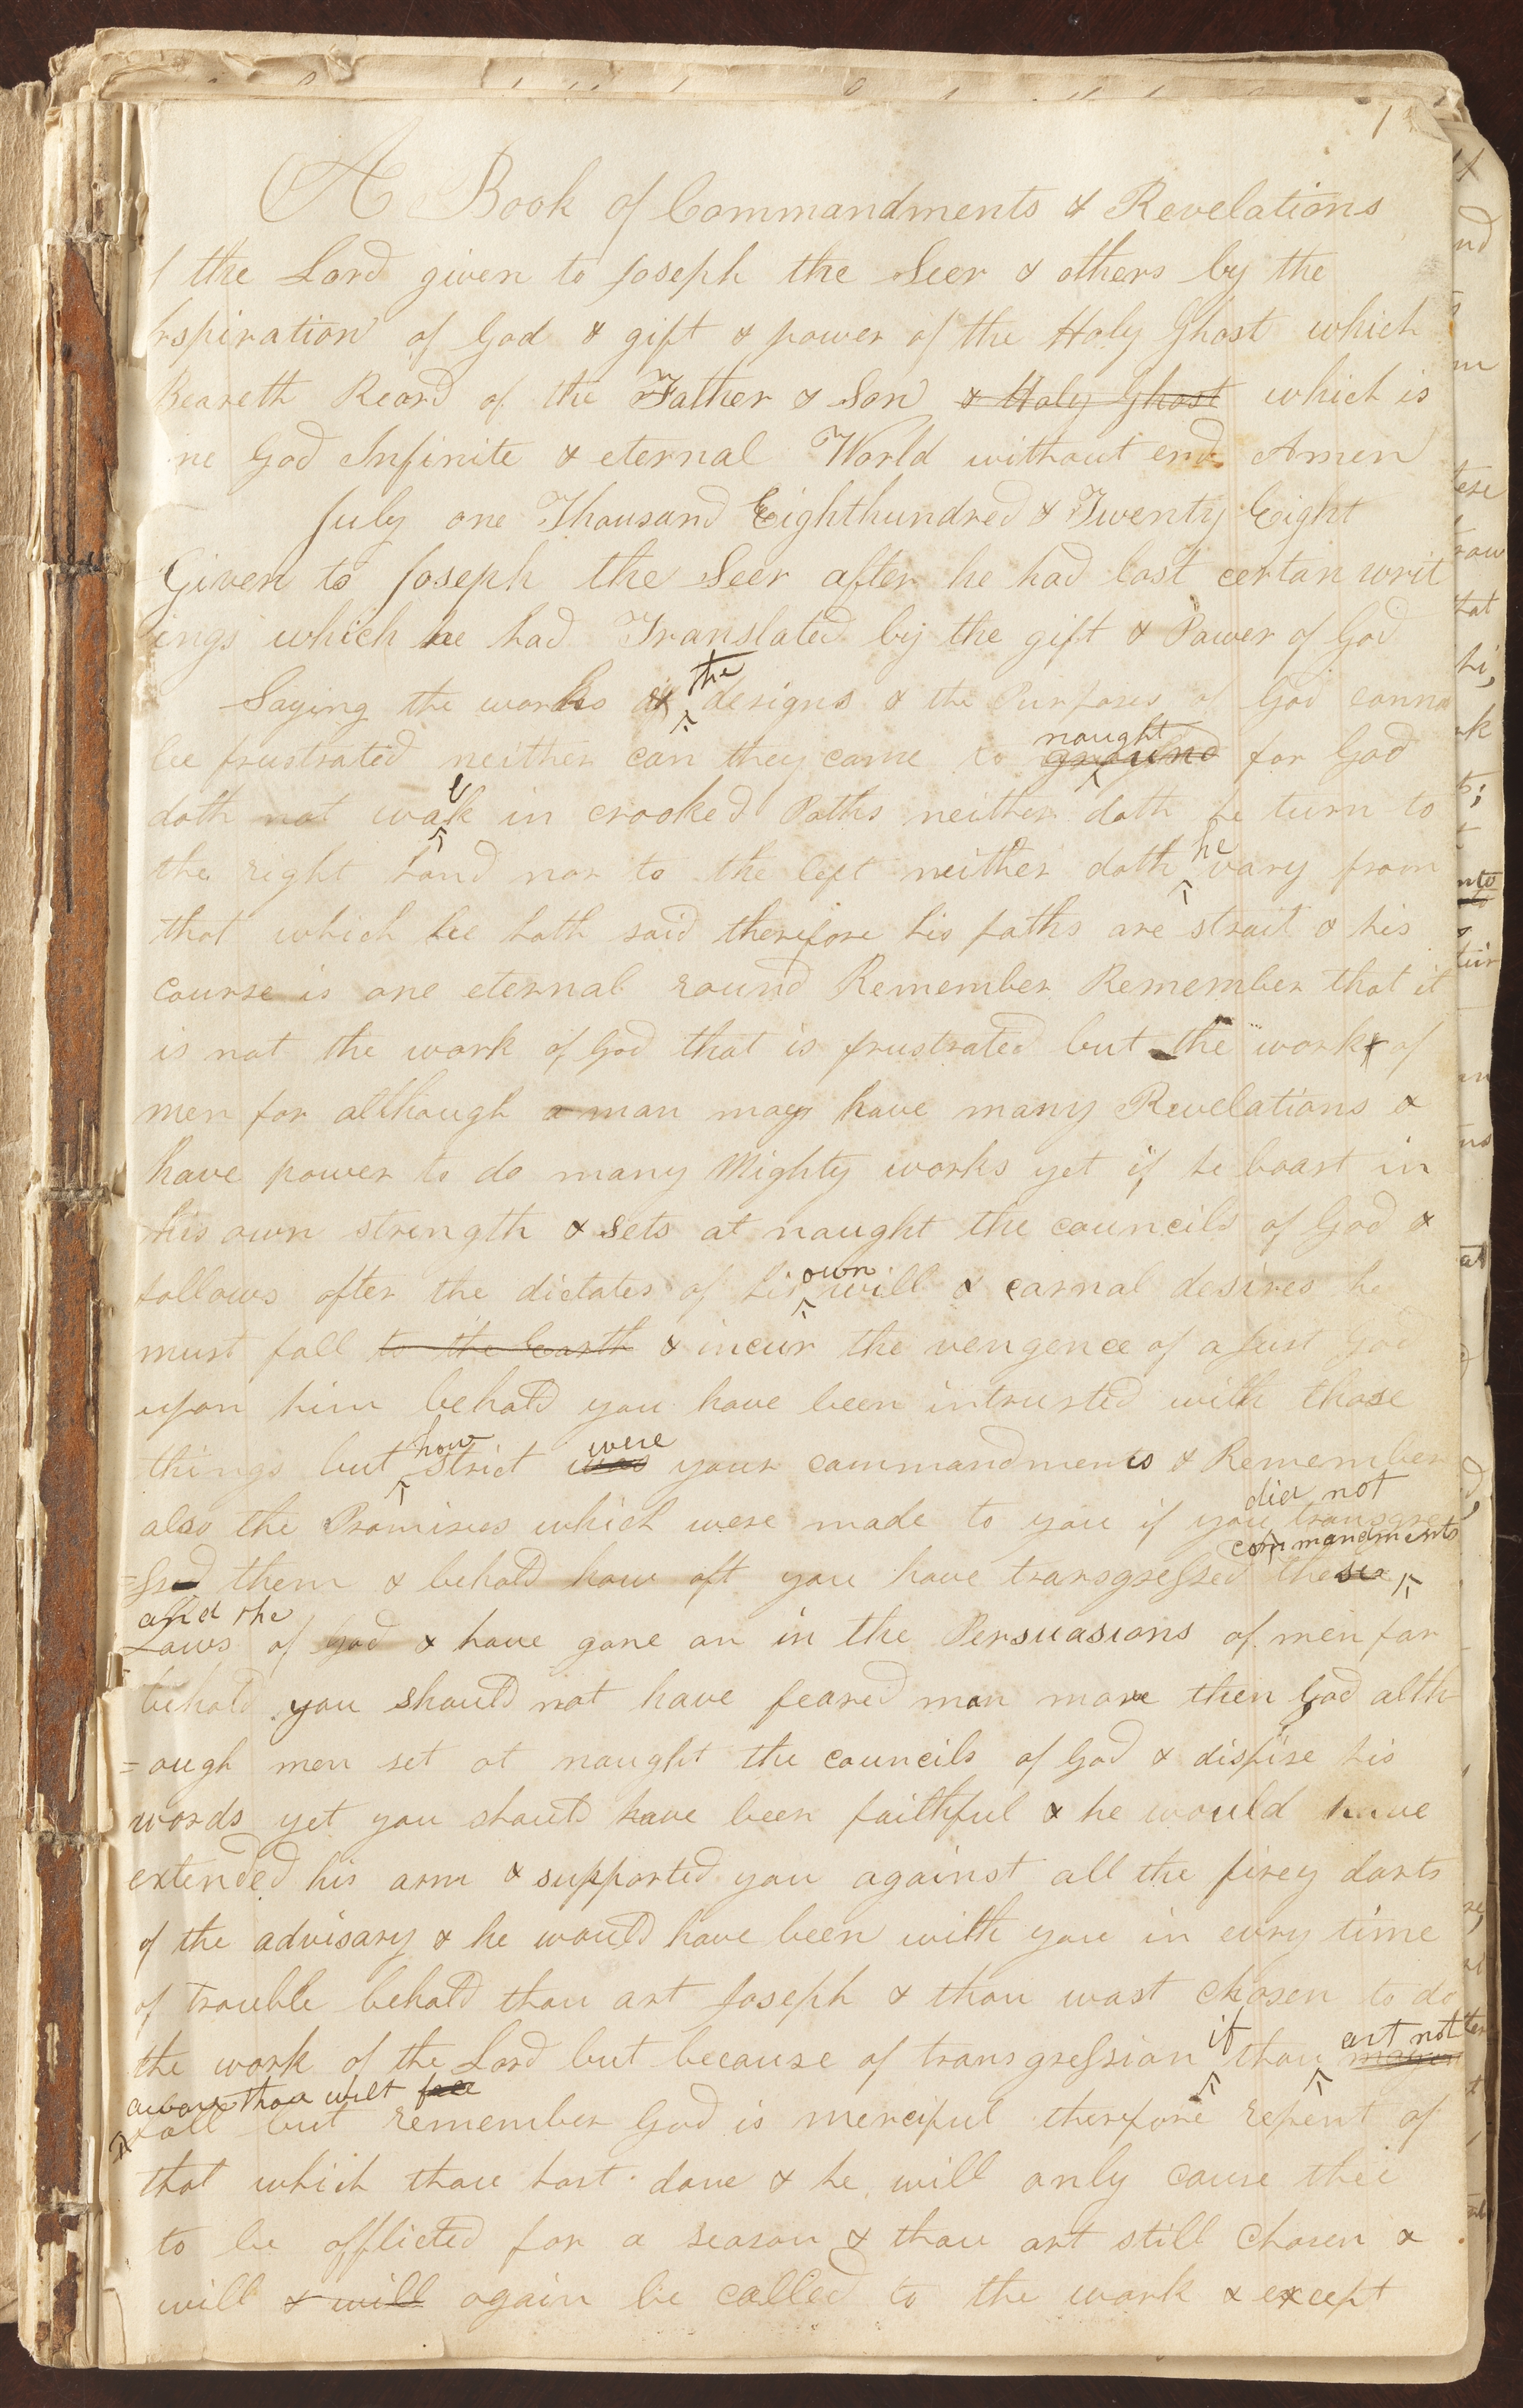 1
A Book of Commandments & Revelations
f the Lord given to Joseph the Seer & others by the
nspiration of God & gift & power of the Holy Ghost which
Beareth Reord of the Father & Son & Holy Ghost which is
ne God Infinite & eternal World without end Amen
July one Thousand Eighthundred & Twenty Eight
Given to Joseph the Seer after he had lost certan writ
ings which he had Translated by the gift & Power of God
the
Saying the works & designs & the Purposes of God canno
naught
be frustrated neither can they come to ground for God
l
doth not wak in crooked Paths neither doth he turn to
he
the right hand nor to the left neither doth vary from
that which he hath said therefore his paths are strait & his
course is one eternal round Remember Remember that it
is not the work of God that is frustrated but the works of
men for although a man may have many Revelations &
have power to do many Mighty works yet if he boast in
his own strength & sets at naught the councils of God &
own
follows after the dictates of his will & carnal desires he
must fall to the Earth & incur the vengence of a Just God
upon him behold you have been intrusted with those
how were
things but strict was your commandments & Remember
did not
also the Promises which were made to you if you transgre
commandments
=ssed them & behold how oft you have transgressed these
and the
Laws of God & have gone on in the Persuasions of men for
behold you should not have feared man more then God alth
=ough men set at naught the councils of God & dispise his
words yet you should have been faithful & he would have
extended his arm & supported you against all the firey darts
of the advisary & he would have been with you in evry time
of trouble behold thou art Joseph & thou wast chosen to do
if art not
the work of the Lord but because of transgression thou mayest
aware thou wilt fall
fall but remember God is merciful therefore repent of
that which thou hast done & he will only cause thee
to be afflicted for a season & thou art still chosen &
will & will again be called to the work & except